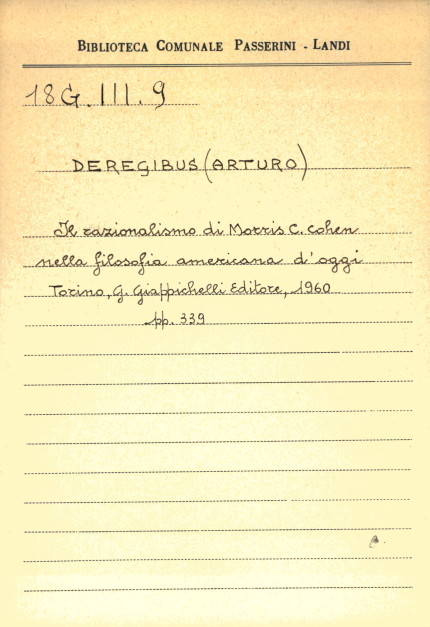 BIBLIOTECA COMUNALE PASSERINI - LANDI
18 G. III. 9
DEREGIBUS (ARTURO)
Il razionalismo di Morris C. Cohen
nella filosofia americana d'oggi
Torino, G. Giappichelli Editore, 1960
pp. 339